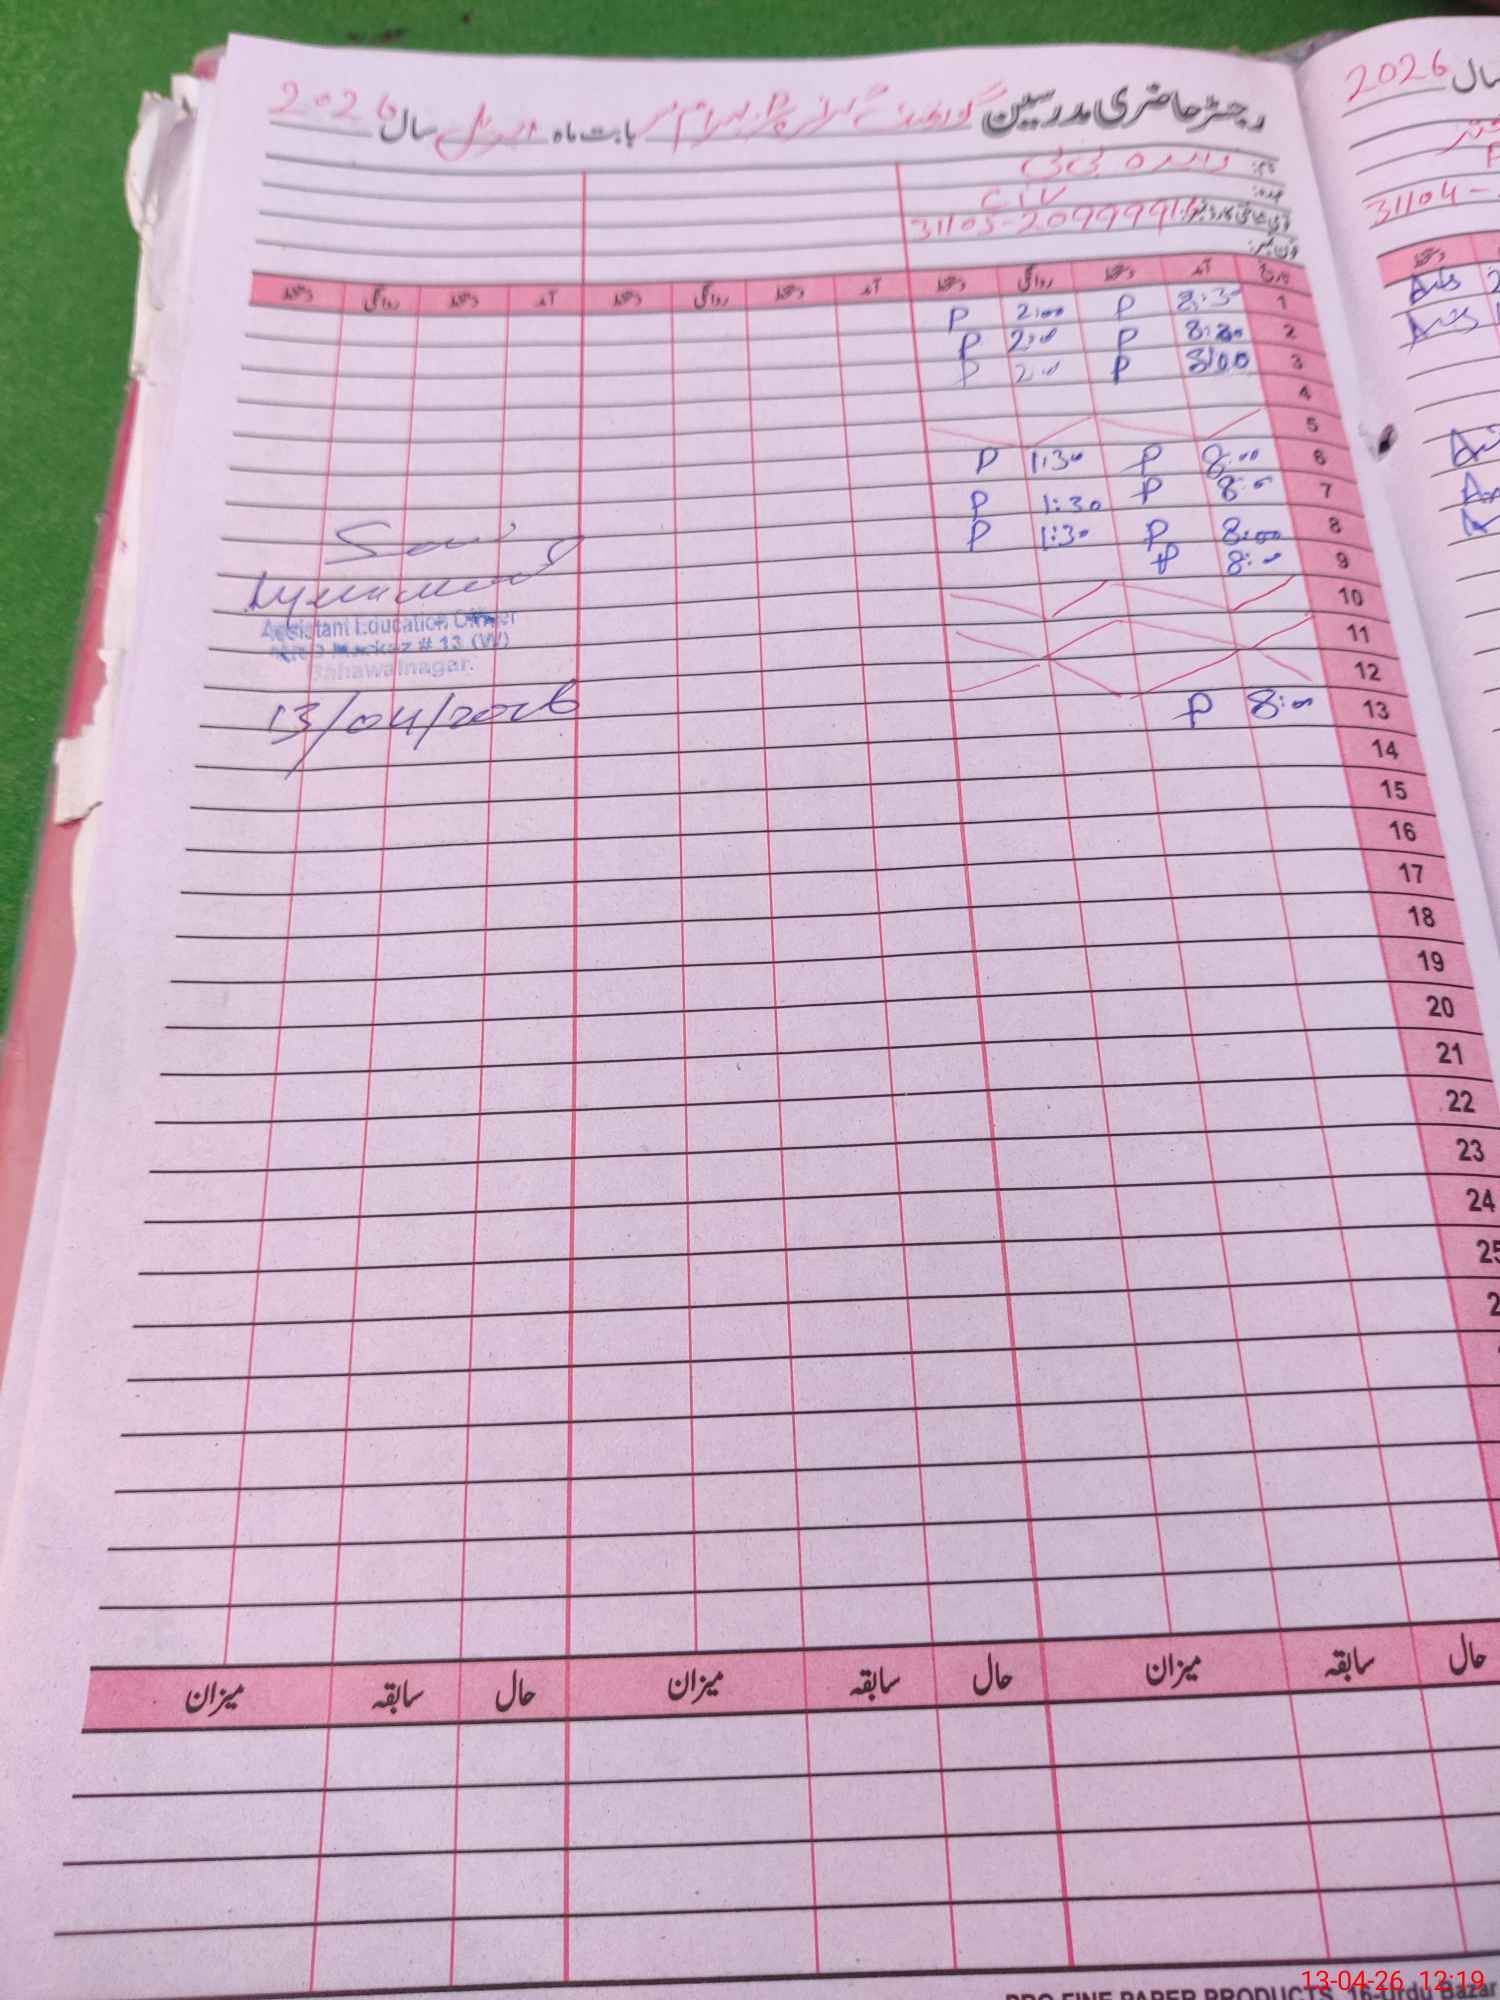 رجسٹر حاضری مدرسین گورنمنٹ گرلز بابت ماہ اپریل سال 2026
نام: زاہدہ بی بی
عہدہ:
شناختی کارڈ نمبر: 31105-209999
فون نمبر:
تاریخ آمد دستخط روانگی دستخط آمد دستخط روانگی دستخط آمد دستخط روانگی دستخط
1 8:30 P 2:00 P
2 8:30 P 2:00 P
3 8:00 P 2:00 P
4
5
6 8:00 P 1:30 P
7 8:00 P 1:30 P
8 8:00 P 1:30 P
9 8:00 P
10
11
12
13 8:00 P
14
15
16
17
18
19
20
21
22
23
24
25
2
Seen
Assistant Education Officer
Markaz # 13 (W)
Bahawalnagar.
13/04/2026
حال سابقہ میزان حال سابقہ میزان حال سابقہ میزان
PRO FINE PAPER PRODUCTS, 16-Urdu Bazar
سال 2026
31104-
دستخط
13-04-26 12:19